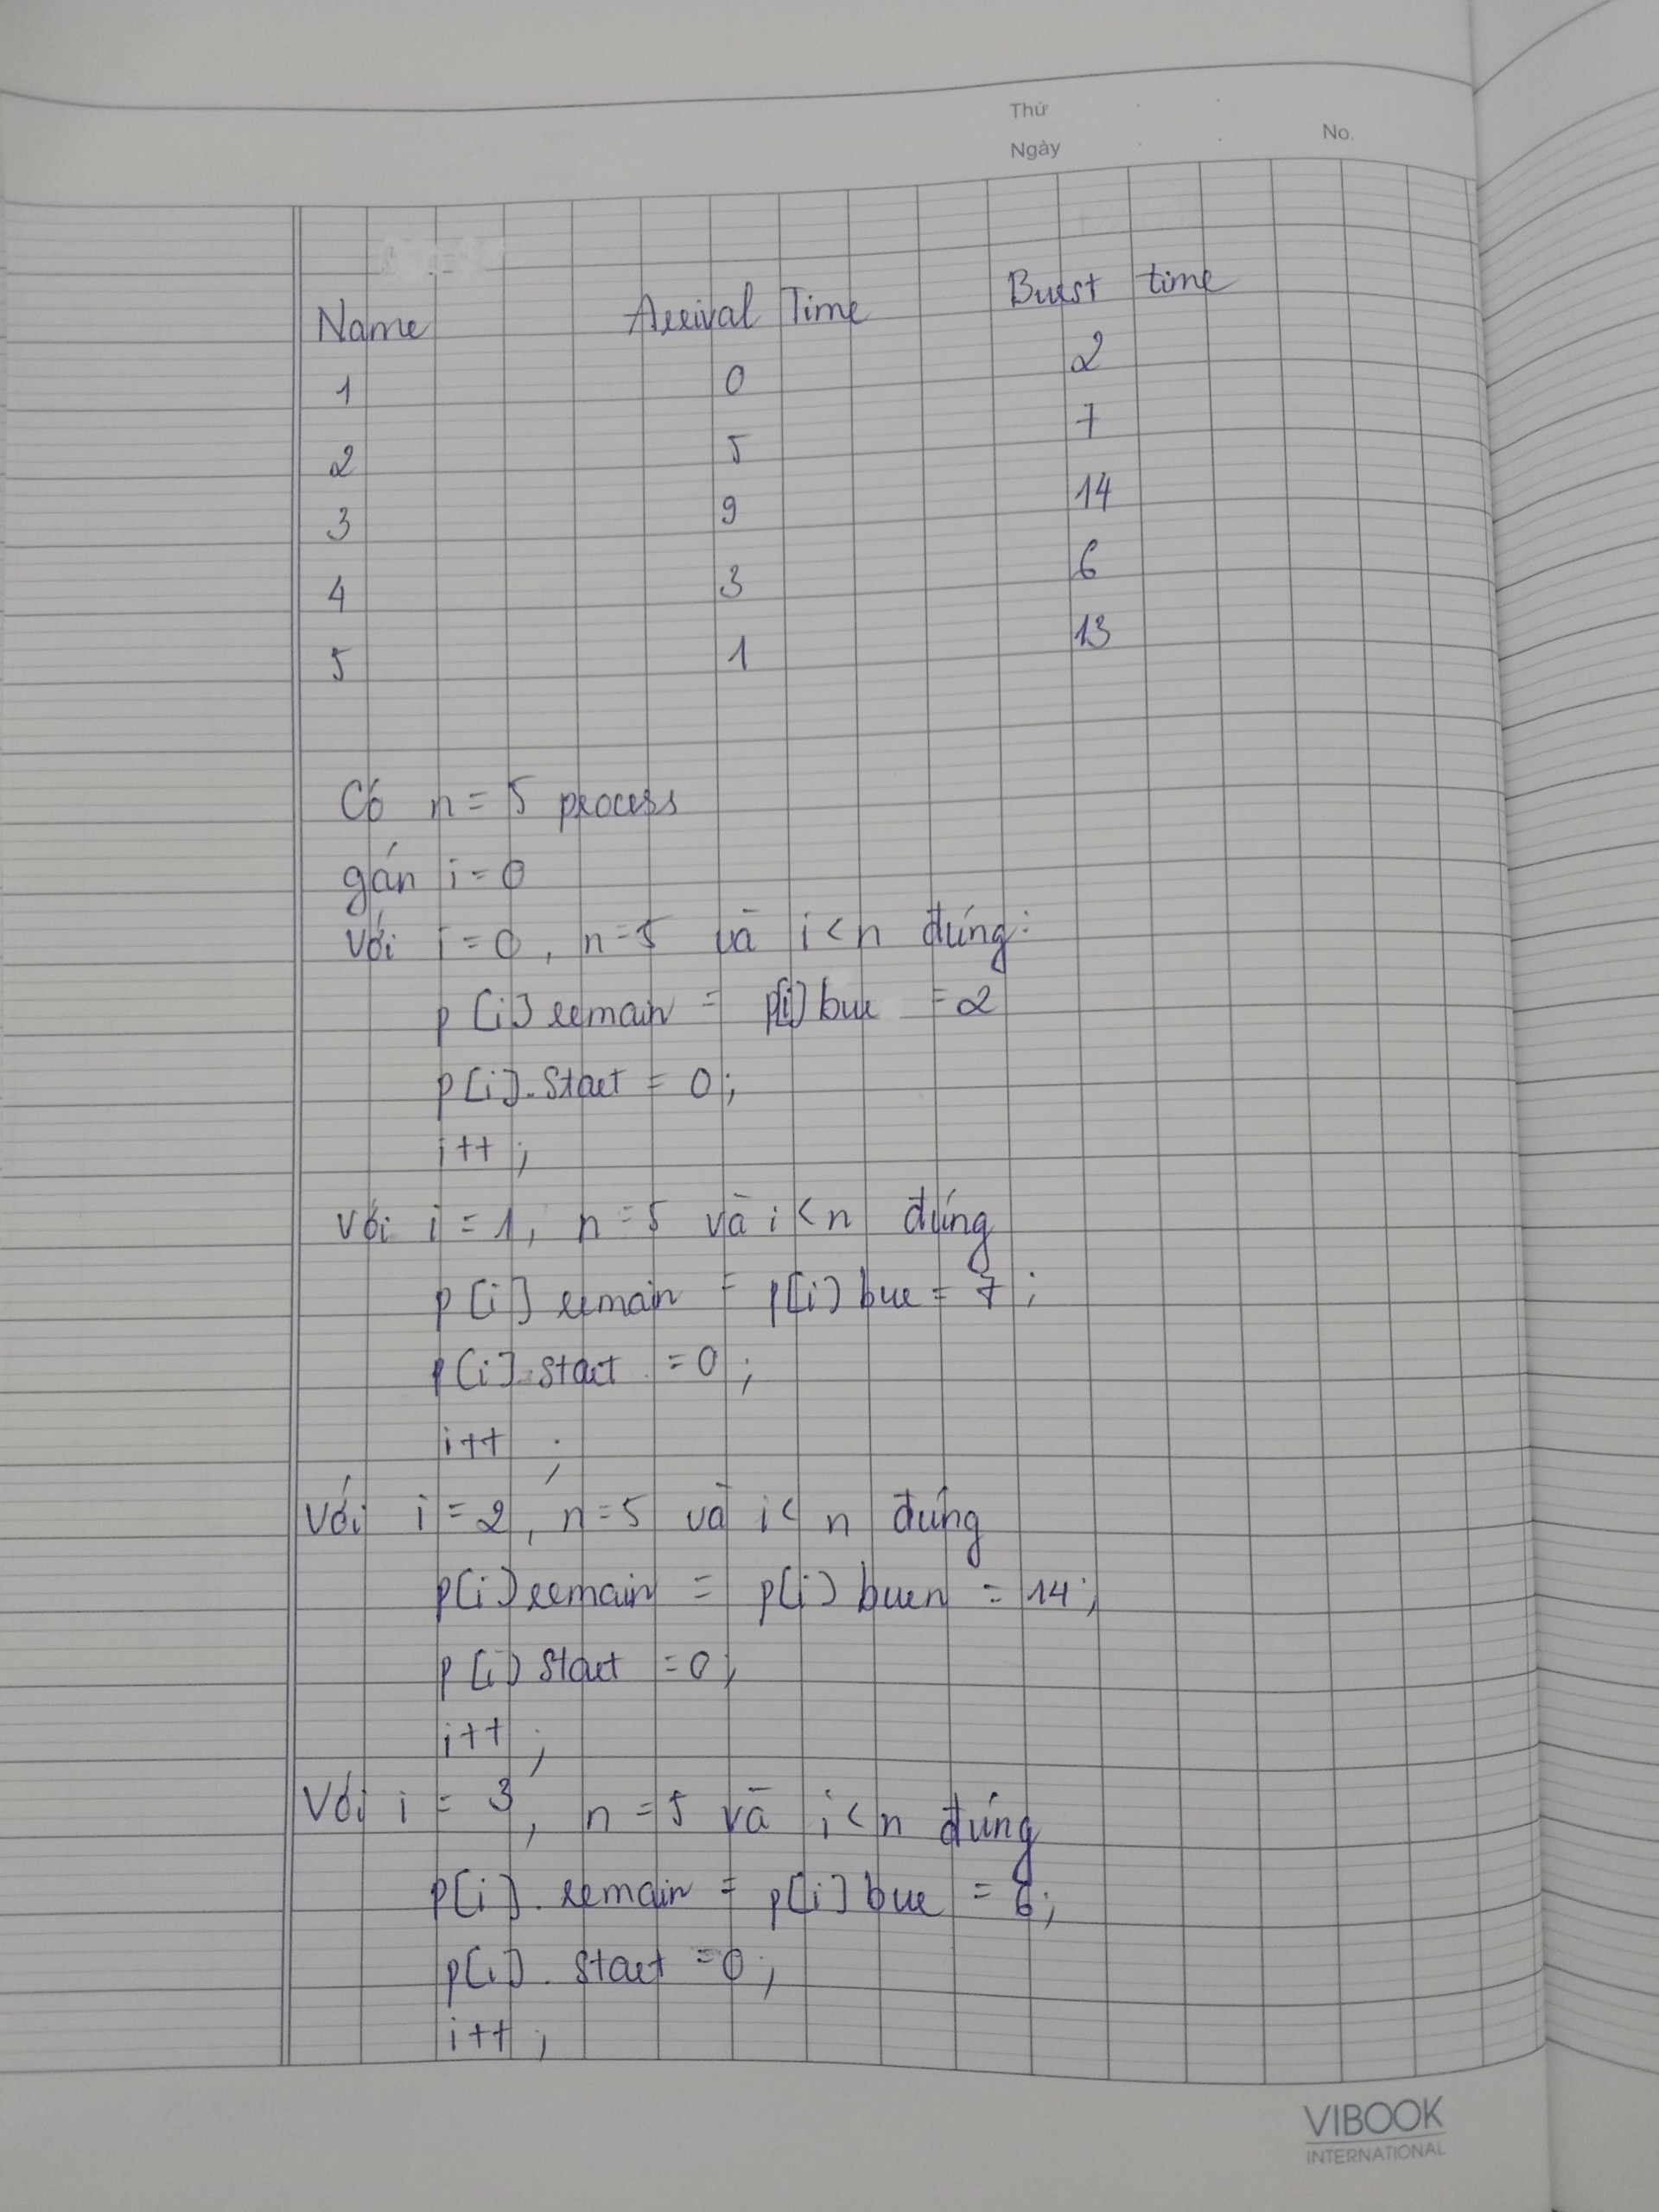 Thứ
Ngày
No.
Name Arrival Time Burst time
1 0 2
2 5 7
3 9 14
4 3 6
5 1 13
Có n = 5 process
gán i = 0
Với i = 0, n = 5 và i < n đúng:
p[i] remain = p[i] bur = 2
p[i]. start = 0;
i++;
Với i = 1, n = 5 và i < n đúng
p[i] remain = p[i] bur = 7;
p[i]. start = 0;
i++;
Với i = 2, n = 5 và i < n đúng
p[i] remain = p[i] burn = 14;
p[i] start = 0;
i++;
Với i = 3, n = 5 và i < n đúng
p[i]. remain = p[i] bur = 6;
p[i]. start = 0;
i++;
VIBOOK
INTERNATIONAL